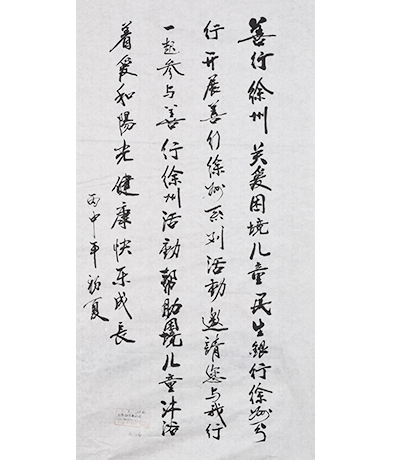 善行徐州关爱困境儿童民生銀行徐州分
行开展善行徐州系列活動邀請您与我行
一起参与善行徐州活動幫助境儿童沐浴
着爱和陽光健康快乐成長
丙申年初夏